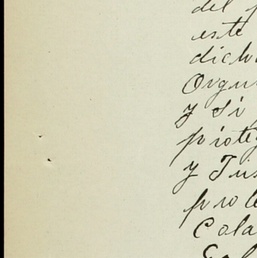 del p
este
dich
Orgu
y si
prote
y Jus
prote
Cola